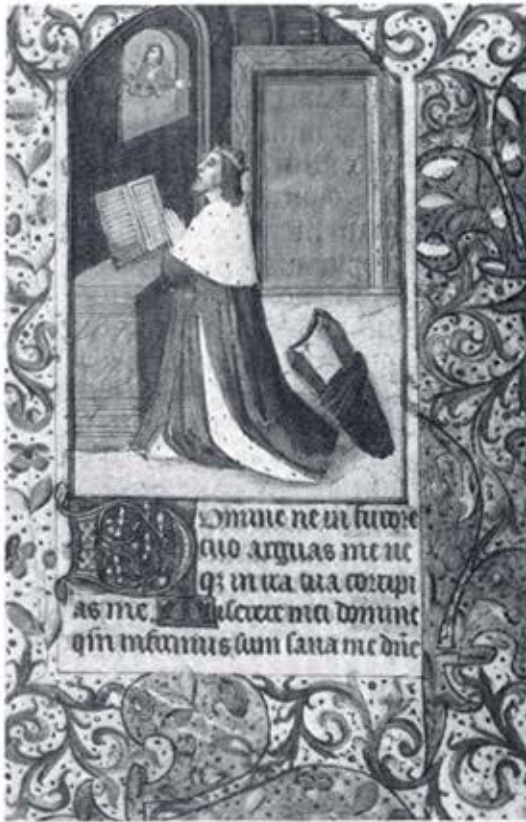 Domine ne in furore
tuo arguas me ne
qz in ira tua corripi
as me Miserere mei domine
qm infirmus sum sana me dñe